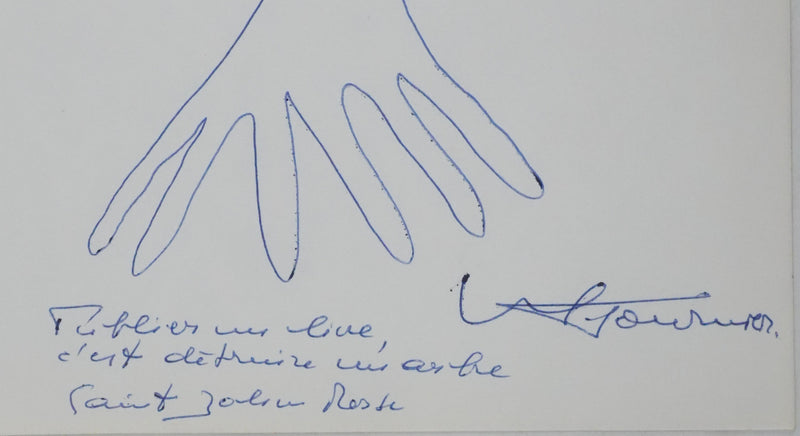 Publier un livre,
c'est détruire un arbre
Saint John Perse
Fournier.